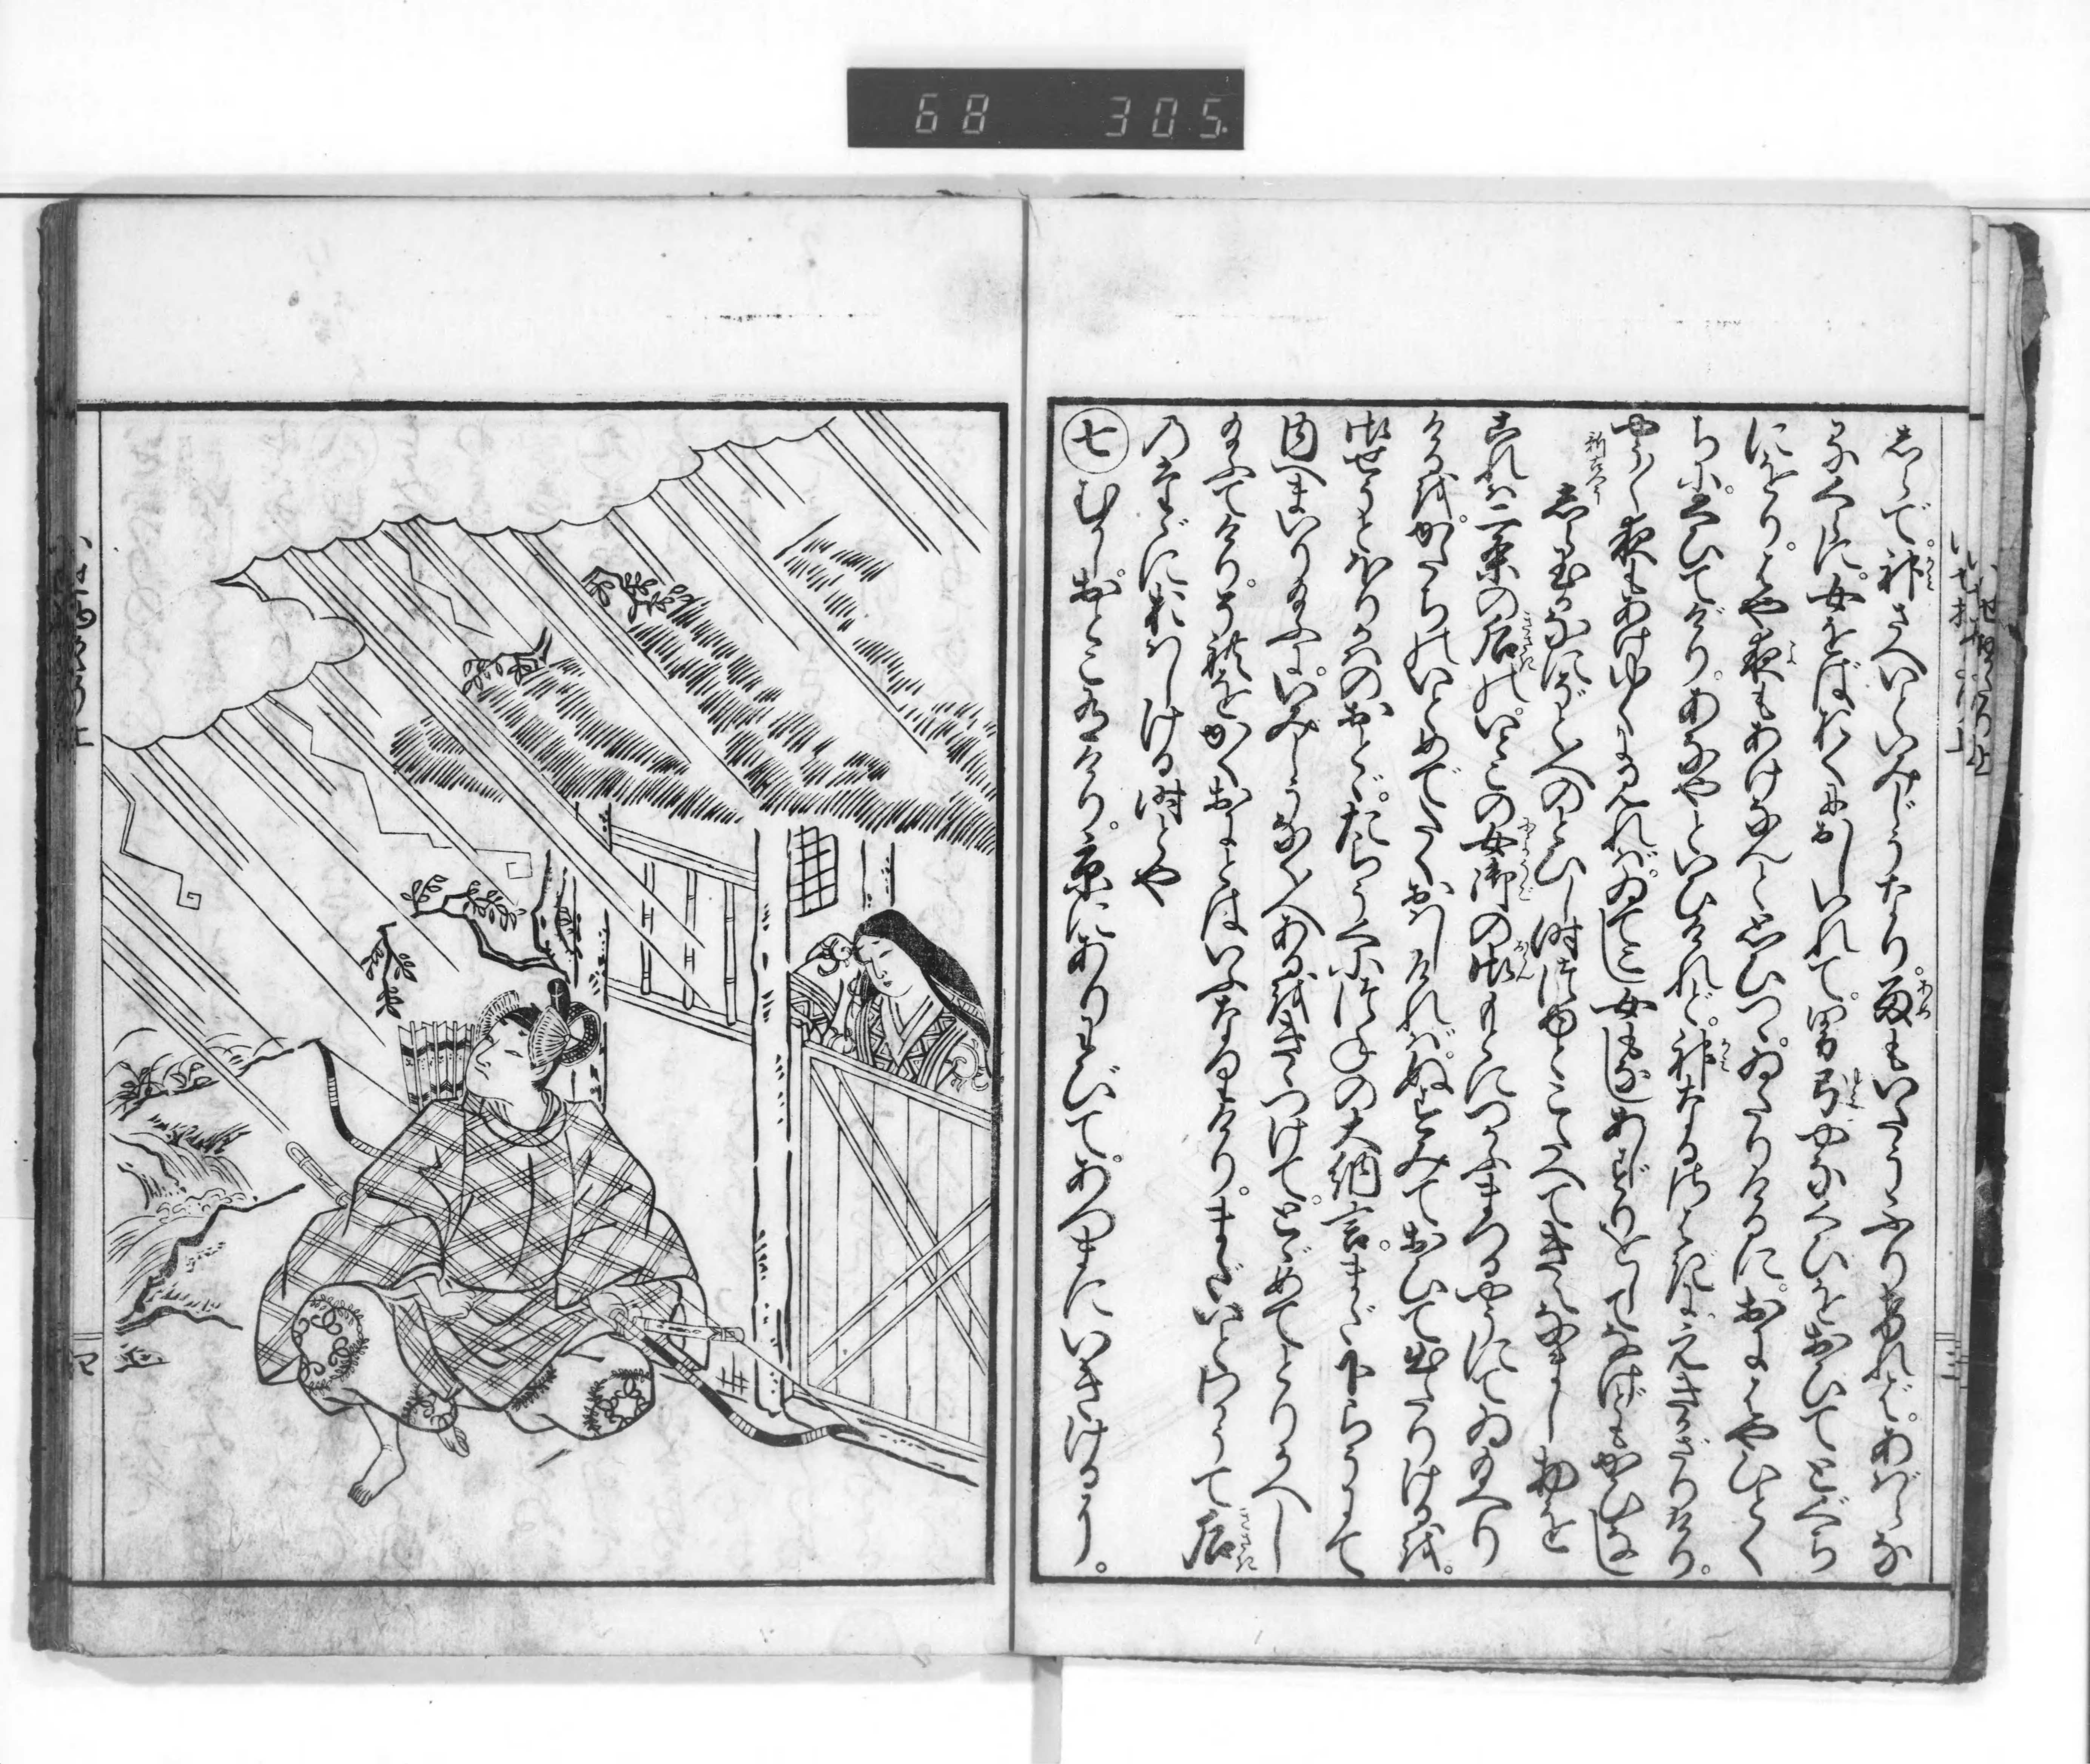 68 305
しらで。神さへいといみじうなり。雨もいたうふりければ。あばらな
るくらに。女をばおくにおしいれて。男弓やなぐひをおひてとぐち
にをり。はや夜もあけなんと思ひつゝゐたりけるに。おにはやひとく
ちに。くひてげり。あなやといひけれど。神なるさはぎにえきかざりけり。
やう〳〵夜もあけゆくに見れば。ゐてこし女もなしあしずりをしてなけどもかひなし
新古今
しら玉かなにぞと人のとひし時つゆとこたへてきえなまし物を
これは二条の后の。いとこの女御の御もとにつかふまつるやうにてゐ給へり
けるを。かたちのいとめでたくおはしければ。ぬすみておひて出たりけるを。
御せうとほり川のおとゞ。たらうくにつねの大納言。まだ下らうにて
内へまいり給ふに。いみじうなく人あるをきゝつけて。とゞめてとりかへし
給ふてけり。それをかくおにとはいふなりけり。まだいとわかうて后
のたゞにおはしける時とや
七 むかしおとこ有けり。京にありわびて。あづまにいきけるに。